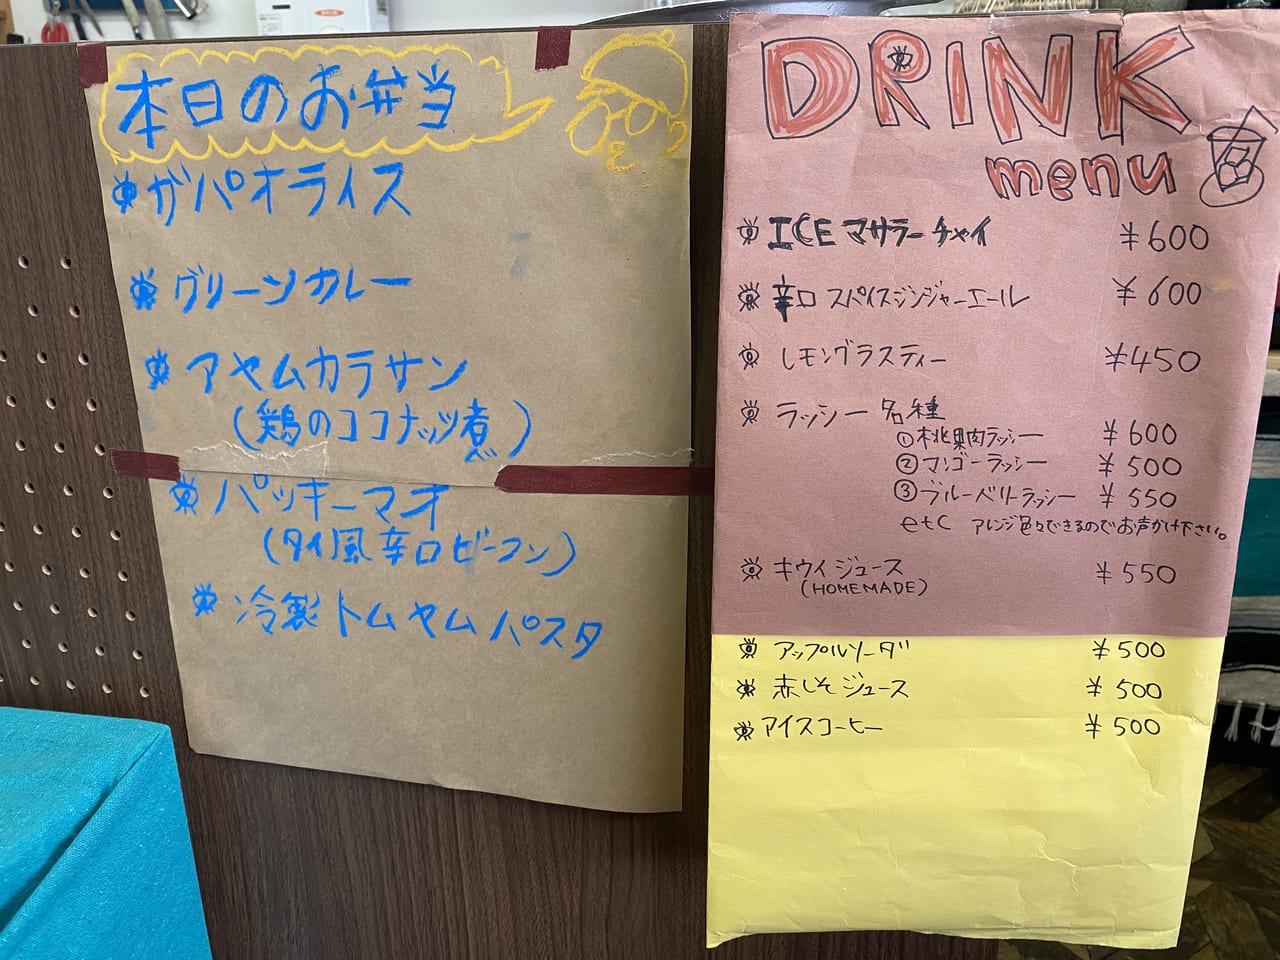 本日のお弁当
ガパオライス
グリーンカレー
アヤムカラサン
(鶏のココナッツ煮)
パッキーマオ
(タイ風辛口ビーフン)
冷製トムヤムパスタ
DRINK
menu
ICE マサラーチャイ ¥600
辛口 スパイスジンジャーエール ¥600
レモングラスティー ¥450
ラッシー 各種
①桃果肉ラッシー ¥600
②マンゴーラッシー ¥500
③ブルーベリーラッシー ¥550
etc アレンジ色々できるのでお声かけ下さい。
キウイジュース ¥550
(HOMEMADE)
アップルソーダ ¥500
赤しそジュース ¥500
アイスコーヒー ¥500